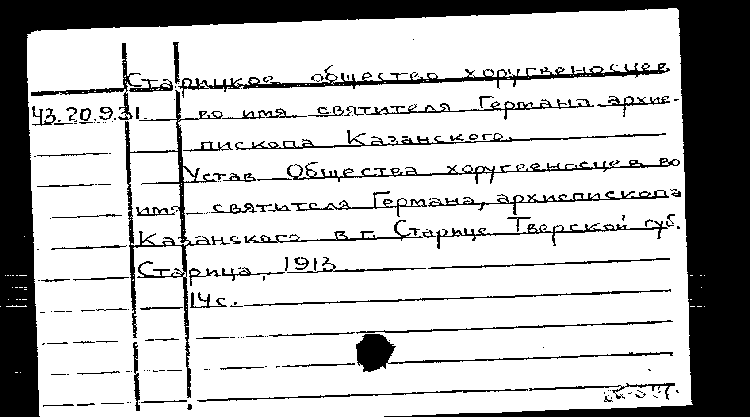 Старицкое общество хоругвеносцев
43.20.931 во имя святителя Германа архие-
пископа Казанского.
Устав Общества хоругвеносцев во
имя святителя Германа, архиепископа
Казанского в г. Старице Тверской губ.
Старица, 1913
14 с.